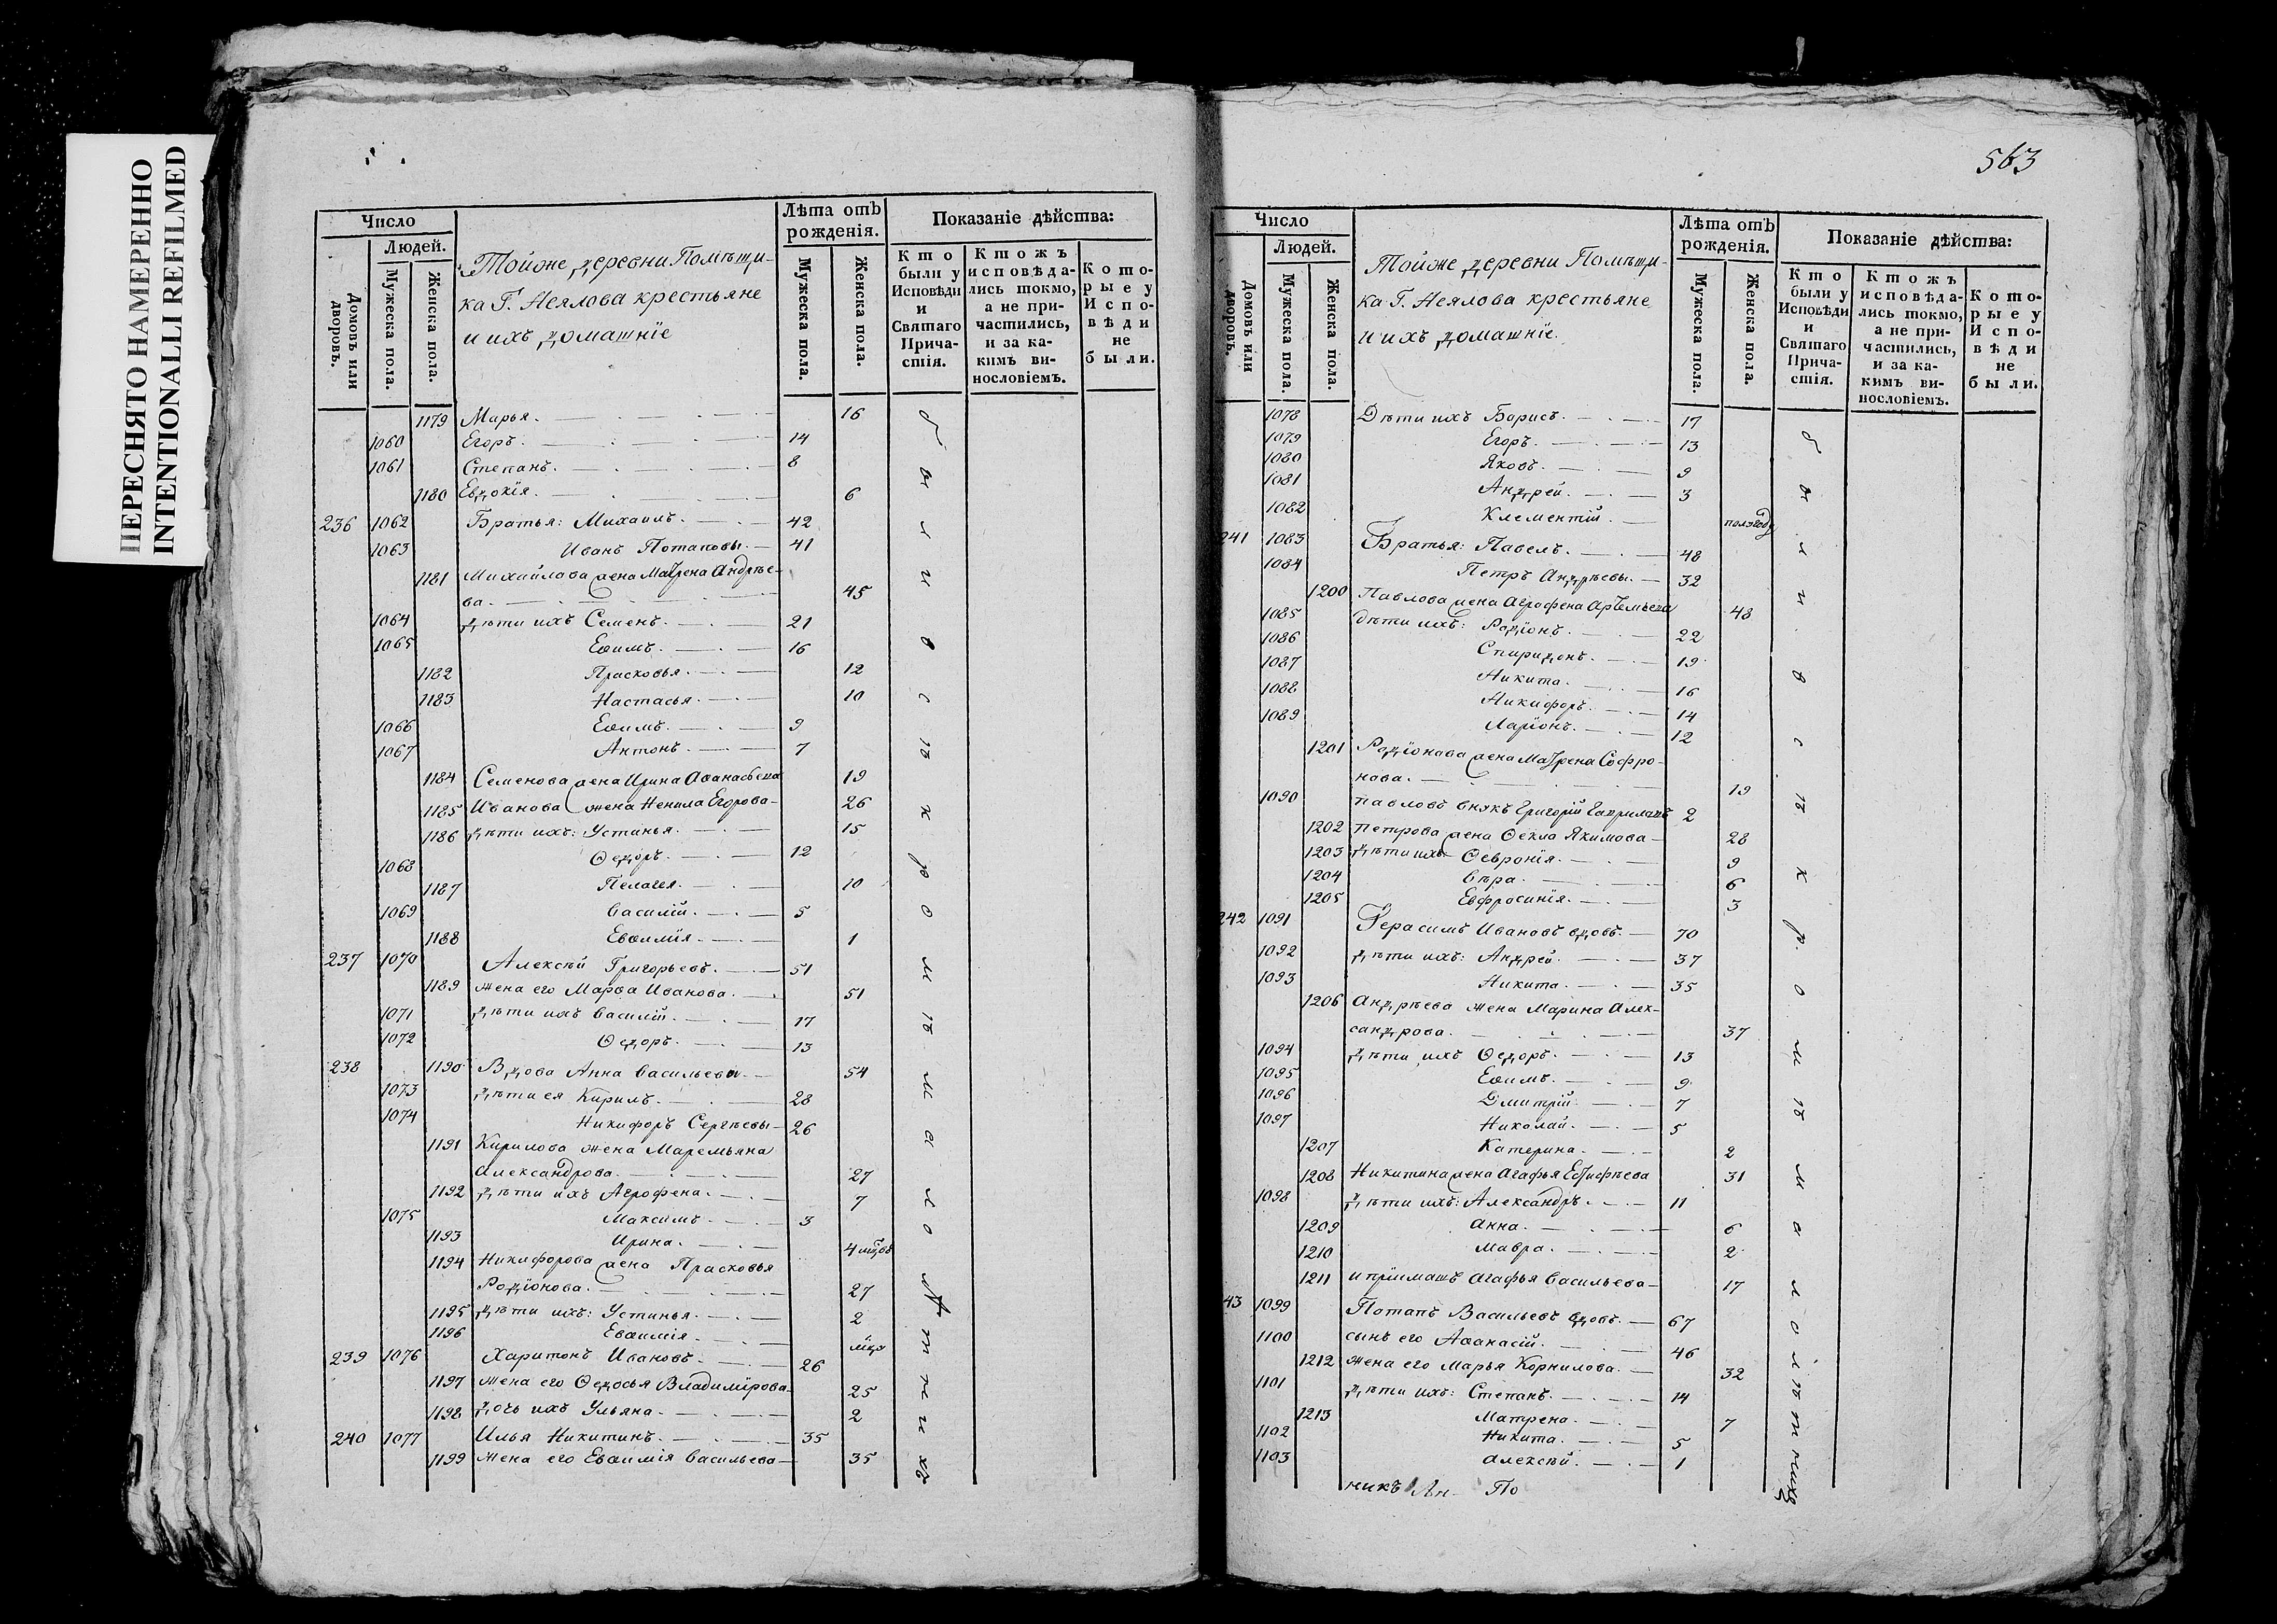 ПЕРЕСНЯТО НАМЕРЕННО
INTENTIONALLI REFILMED
Число
Людей.
Домовъ или дворовъ.
Мужеска пола.
Женска пола.
Тойже деревни Помѣщи-
ка Г. Неялова крестьяне
и ихъ домашніе
Лѣта отъ рожденія.
Мужеска пола.
Женска пола.
Показаніе дѣйства:
Кто были у Исповѣди и Святаго Причастія.
Ктожъ исповѣда-лись токмо, а не при-частились, и за ка-кимъ ви-нословіемъ.
Кото-рые у Испо-вѣди не были.
1179 Марья. 16
1060 Егоръ. 14
1061 Степанъ. 8
1180 Евдокія. 6
236 1062 Братья: Михаилъ. 42
1063 Иванъ Потаповы. 41
1181 Михайлова жена Матрена Андрѣе-
ва. 45
1064 Дѣти ихъ Семенъ. 21
1065 Евѳимъ. 16
1182 Прасковья. 12
1183 Настасья. 10
1066 Евѳимъ. 9
1067 Антонъ. 7
1184 Семенова жена Ирина Аѳанасьева 19
1185 Иванова жена Ненила Егорова 26
1186 Дѣти ихъ: Устинья. 15
1068 Ѳедоръ. 12
1187 Пелагея. 10
1069 Василій. 5
1188 Евѳимія. 1
237 1070 Алексѣй Григорьевъ. 51
1189 жена его Марѳа Иванова. 51
1071 Дѣти ихъ Василій. 17
1072 Ѳедоръ. 13
238 1190 Вдова Анна Васильева. 54
1073 Дѣти ея Кирилъ. 28
1074 Никифоръ Сергѣевы 26
1191 Кирилова жена Маремьяна
Александрова. 27
1192 Дѣти ихъ Агрофена. 7
1075 Максимъ. 3
1193 Ирина. 4 мцов
1194 Никифорова жена Прасковья
Родіонова. 27
1195 Дѣти ихъ: Устинья. 2
1196 Евѳимія. мцъ
239 1076 Харитонъ Ивановъ. 26
1197 жена его Ѳедосья Владимірова 25
1198 Дочь ихъ Ульяна. 2
240 1077 Илья Никитинъ. 35
1199 жена его Евѳимія Васильева 35
563
Число
Людей.
Домовъ или дворовъ.
Мужеска пола.
Женска пола.
Тойже деревни Помѣщи-
ка Г. Неялова крестьяне
и ихъ домашніе.
Лѣта отъ рожденія.
Мужеска пола.
Женска пола.
Показаніе дѣйства:
Кто были у Исповѣди и Святаго Причастія.
Ктожъ исповѣда-лись токмо, а не при-частились, и за ка-кимъ ви-нословіемъ.
Кото-рые у Испо-вѣди не были.
1078 Дѣти ихъ Борисъ. 17
1079 Егоръ. 13
1080 Яковъ. 9
1081 Андрей. 3
1082 Клементій. полгоду
241 1083 Братья: Павелъ. 48
1084 Петръ Андрѣевы. 32
1200 Павлова жена Аграфена Артемьева 48
1085 дѣти ихъ: Родіонъ. 22
1086 Спиридонъ. 19
1087 Никита. 16
1088 Никифоръ. 14
1089 Ларіонъ. 12
1201 Родіонова жена Матрена Софро-
нова. 19
1090 Павловъ внукъ Григорій 2
1202 Петрова жена Ѳекла Якимова 28
1203 Дѣти ихъ Ѳевронія. 9
1204 Вѣра. 6
1205 Евфросинія. 3
242 1091 Герасимъ Ивановъ вдовъ. 70
1092 Дѣти ихъ: Андрей. 37
1093 Никита. 35
1206 Андрѣева жена Марина Алек-
сандрова. 37
1094 Дѣти ихъ Ѳедоръ. 13
1095 Евѳимъ. 9
1096 Дмитрій 7
1097 Николай. 5
1207 Катерина. 2
1208 Никитина жена Агафья Евтифѣева 31
1098 Дѣти ихъ: Александръ. 11
1209 Анна. 6
1210 Мавра. 2
1211 и пріимашъ Агафья Васильева 17
43 1099 Потапъ Васильевъ вдовъ. 67
1100 сынъ его Аѳанасій. 46
1212 жена его Марья Корнилова. 32
1101 Дѣти ихъ: Степанъ. 14
1213 Матрена. 7
1102 Никита. 5
1103 Алексѣй. 1
никъ Ан По